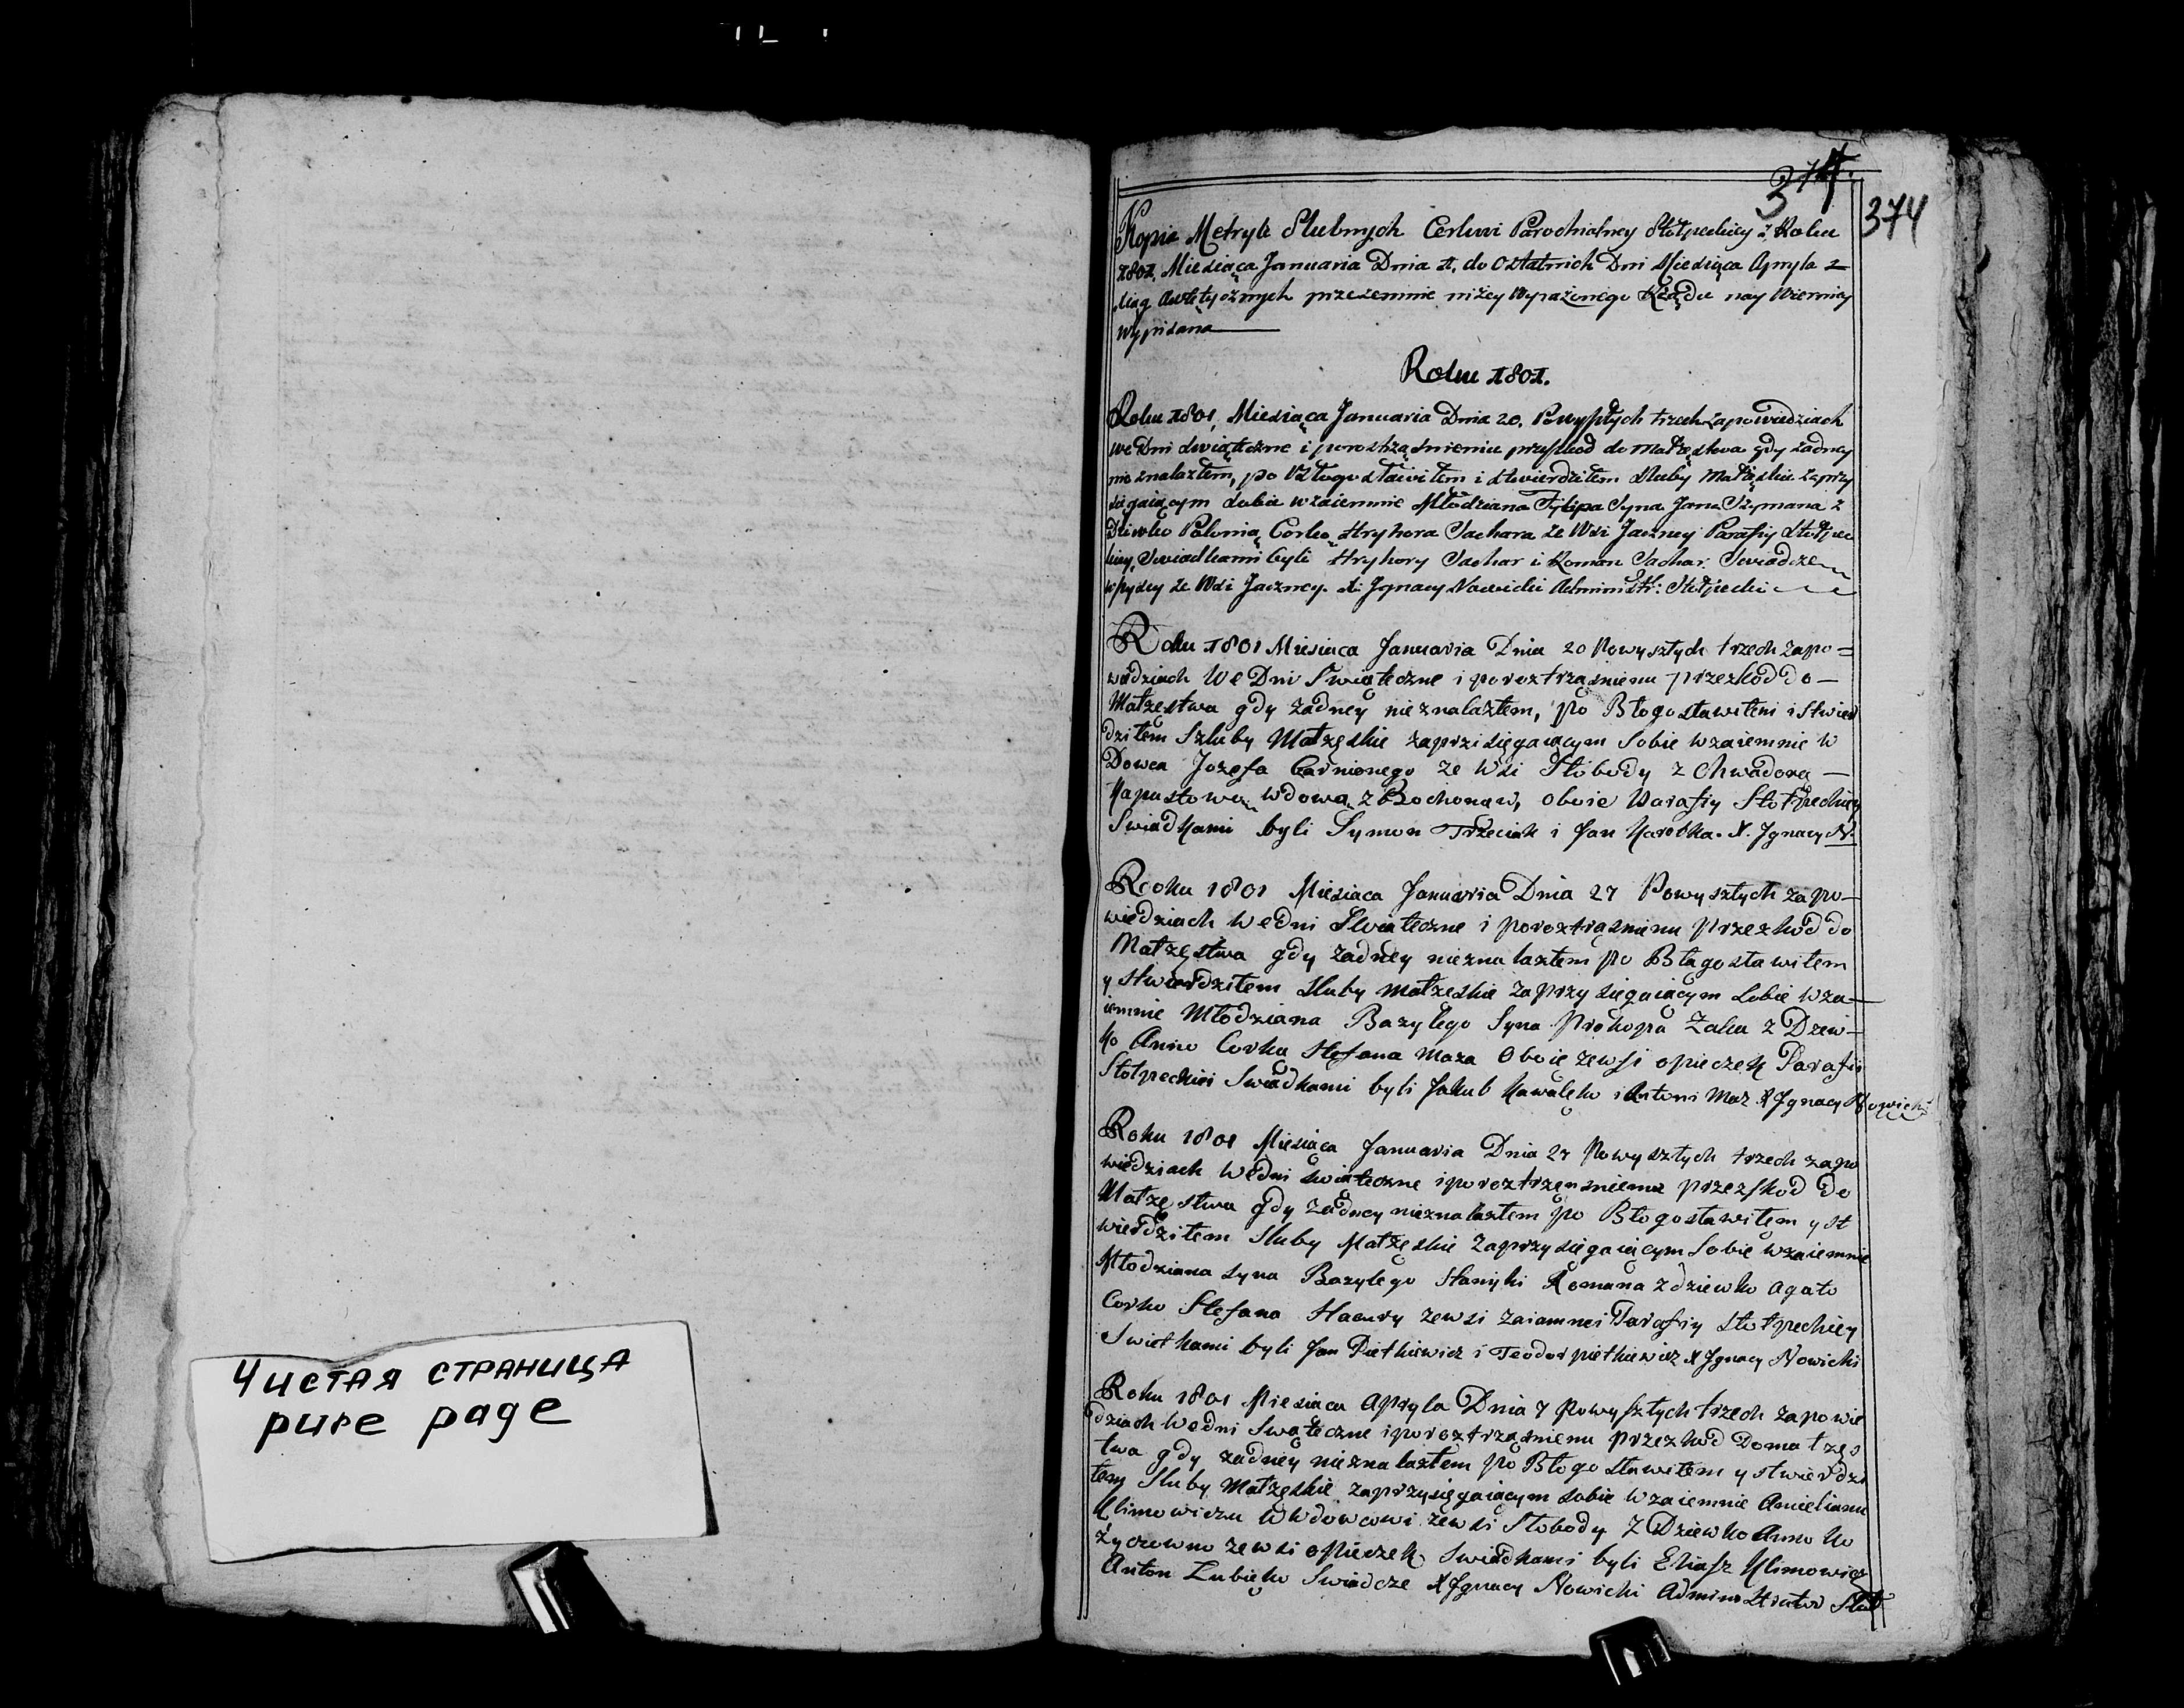 Чистая страница
pure page
374.
374
Kopia Metryk Slubnych Cerkwi Parochialney Stołpeckiey z Roku
1801, Miesiąca Januaria Dnia 1, do Ostatnich Dni Miesiąca Apryla z
Xiąg przezemnie niżey Wyrażonego nay Wierniey
Wypisana
Roku 1801.
Roku 1801, Miesiąca Januaria Dnia 20, Powyszłych trzech zapowiedziach
we Dni swiąteczne i porostrząśnieniu przeszkod do Małżęstwa gdy żadney
nie znalazłem, po Błogosławiłem i stwierdziłem sluby Małżęskie zaprzy
sięgaiącym sobie wzaiemnie Młodziana Filipa Syna Jana Szymana z
Dziewko Polonią Corko Hryhora Sachara ze Wsi Jaczney Parafiy Stołpec
kiey, Swiadkami byli Hryhory Sachar i Roman Sachar. Swiadcze
ze Wsi Jaczney. X. Jgnacy Nowicki Administr: Stołpecki
Roku 1801 Miesiaca Januaria Dnia 20 Powyszłych trzech zapo=
wiedziach We Dni Swiąteczne i poroztrząsnieniu przezkod do—
Małzęstwa gdy żadney nieznalazłem, po Błogosławiłem i Stwier
dziłem Szluby Małzęskie zaprzisięgaiącym Sobie wzaiemnie W
Dowca Jozefa Carnionego ze Wsi Słobody z Chwadorą—
Kapustową wdową z Rochonaw, oboie Parafiy Stołpeckiey
Swiadkami byli Symon Trzeciak i Jan Karobka. X. Jgnacy N.
Rooku 1801 Miesiaca Januaria Dnia 27 Powyszłych zapo—
wiedziach Wedni Swiąteczne i poroztrąsnienu Przezkod do
Małzęstwa gdy żadney nieznalazłem po Błagosławiłem
y stwierdziłem sluby małzęskie zaprzysięgaiącym sobie wza—
iemnie Młodziana Bazylego Syna Prokopa Zaka z Dziew—
ko Anno Corka Stefana Maza Oboie zewsi opieczek Parafii
Stołpeckiei Swiadkami byli Jakub Kawalęko i Antoni Maz X Jgnacy Nowicki
Roku 1801 Miesiąca Januaria Dnia 27 Powyszłych trzech zapo
wiedziach Wedni swiąteczne iporoztrzęnsnieniu przezskod do
Małzęstwa gdy żadney nieznalazłem po Błogosławiłem y st
wierdziłem Sluby Małzęskie zaprzysięgaiącym Sobie wzaiemnie
Młodziana syna Bazylego Romana z dziewko Agato
Corko Stefana zewsi zaiamnei Parafiy Stołpeckiey
Swietkami byli Jan Pietkiewicz i Teodor pietkiewicz X Jgnacy Nowicki
Roku 1801 Miesiaca Apryla Dnia 7 Powyszłych trzech zapowie
dziach Wedni Swąteczne iporoztrząsnienu przezkod Domałzęs
twa gdy zadney nieznalazłem po Błogosławiłem y stwierdzi
łem Sluby Małzęskie zaprzysięgaiącym sobie wzaiemnie Amielianu
Klimowiczu Wdowcowi zewsi Słobody Z Dziewko Anno Ko
życzowno zewsi opieczek, Swiadkami byli Eliasz Klimowicz
Anton Zubięko Swiadcze X Jgnacy Nowicki Administrator Stoł